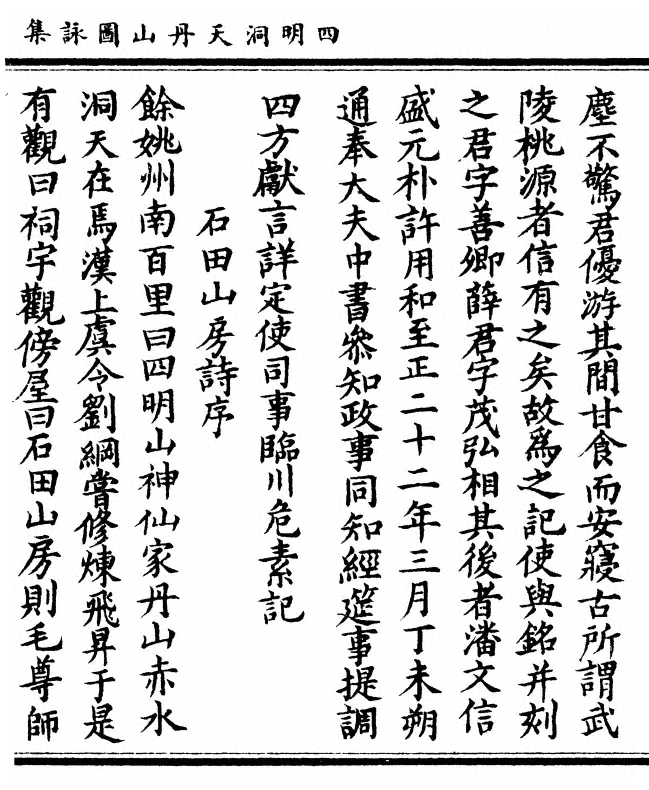 四明洞天丹山圖詠集
塵不驚君優游其間甘食而安寢古所謂武
陵桃源者信有之矣故爲之記使與銘并刻
之君字善卿薛君字茂弘相其後者潘文信
盛元朴許用和至正二十二年三月丁未朔
通奉大夫中書參知政事同知經筵事提調
四方獻言詳定使司事臨川危素記
石田山房詩序
餘姚州南百里曰四明山神仙家丹山赤水
洞天在焉漢上虞令劉綱嘗修煉飛昇于是
有觀曰祠宇觀傍屋曰石田山房則毛尊師